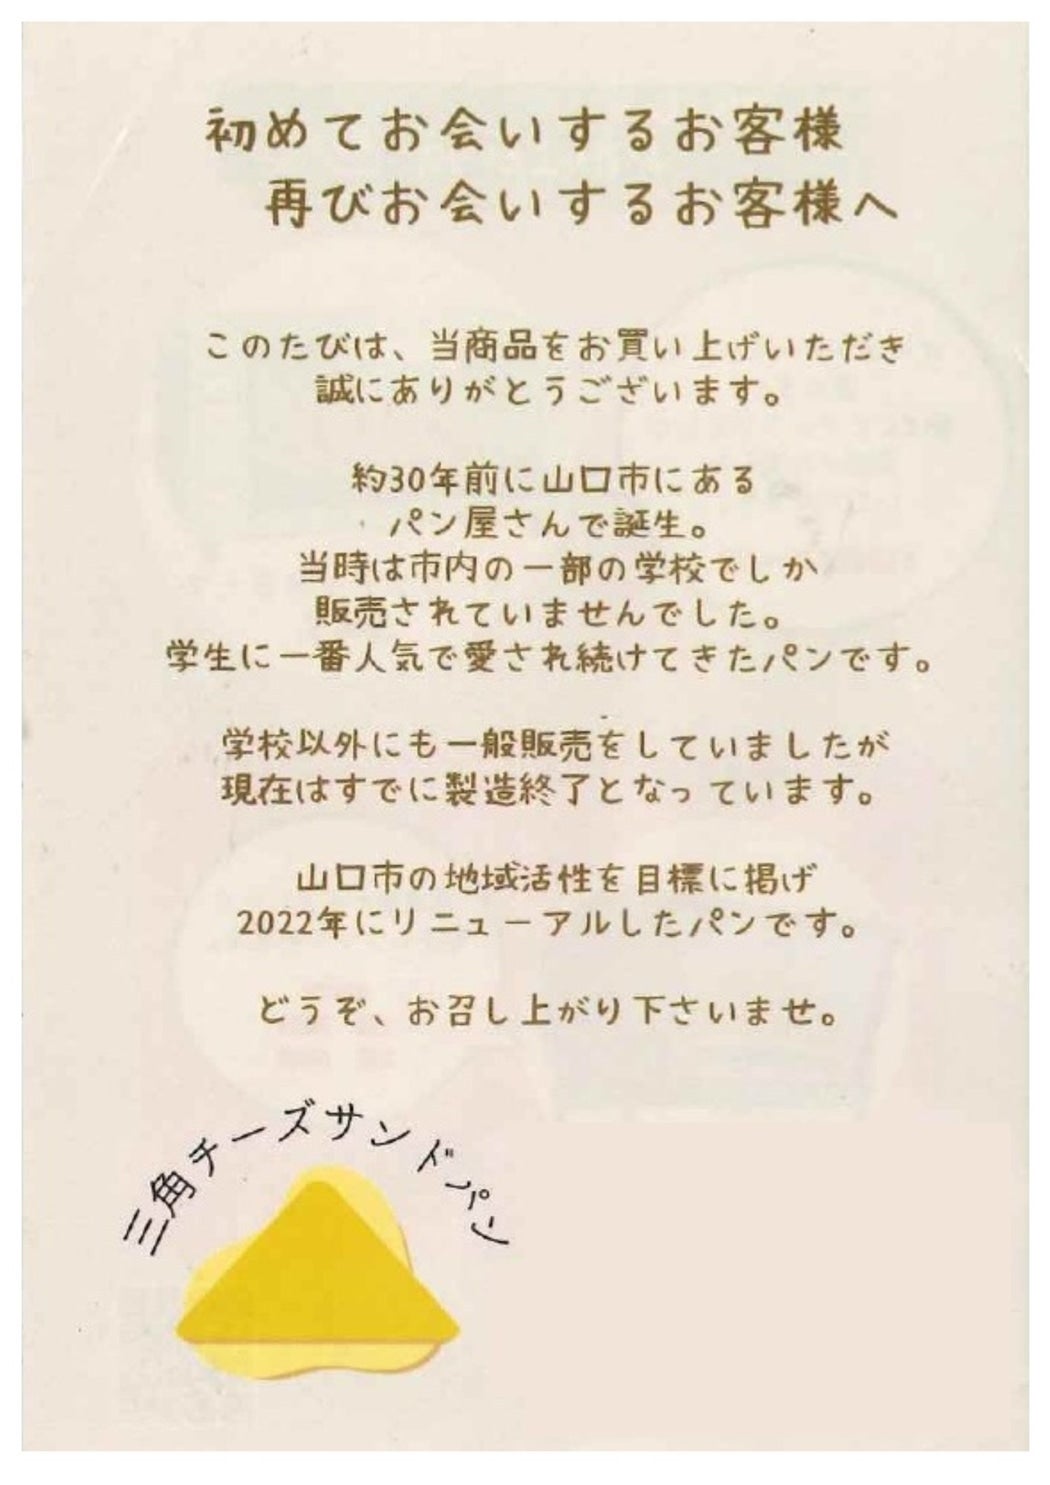 初めてお会いするお客様
再びお会いするお客様へ
このたびは、当商品をお買い上げいただき
誠にありがとうございます。
約30年前に山口市にある
パン屋さんで誕生。
当時は市内の一部の学校でしか
販売されていませんでした。
学生に一番人気で愛され続けてきたパンです。
学校以外にも一般販売をしていましたが
現在はすでに製造終了となっています。
山口市の地域活性を目標に掲げ
2022年にリニューアルしたパンです。
どうぞ、お召し上がり下さいませ。
三角チーズサンドパン